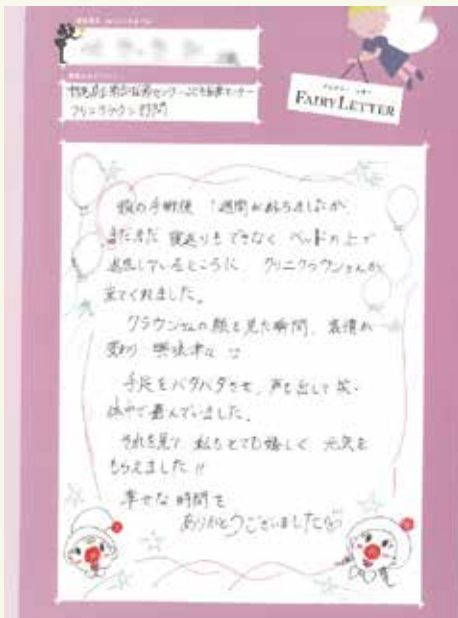 FAIRY LETTER
クリニクラウン訪問
頭の手術後 1週間が経ちましたが
まだまだ 寝返りもできなく ベッドの上で
退屈しているところに クリニクラウンさんが
来てくれました。
クラウンさんの顔を見た瞬間、表情が
変わり 興味津々
手足をバタバタさせ、声を出して笑い
体中で喜んでいました。
それを見て 私もとても嬉しく 元気を
もらえました!!
幸せな時間を
ありがとうございました